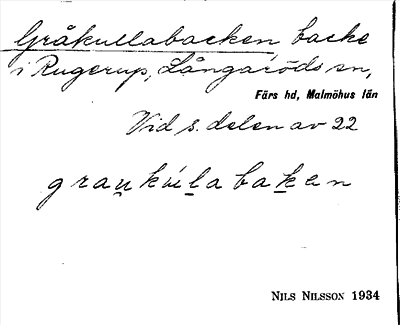 Gråkullabacken, backe
i Rugerup, Långaröds sn,
Färs hd, Malmöhus län
Vid s. delen av 22
graukulabaken
NILS NILSSON 1934